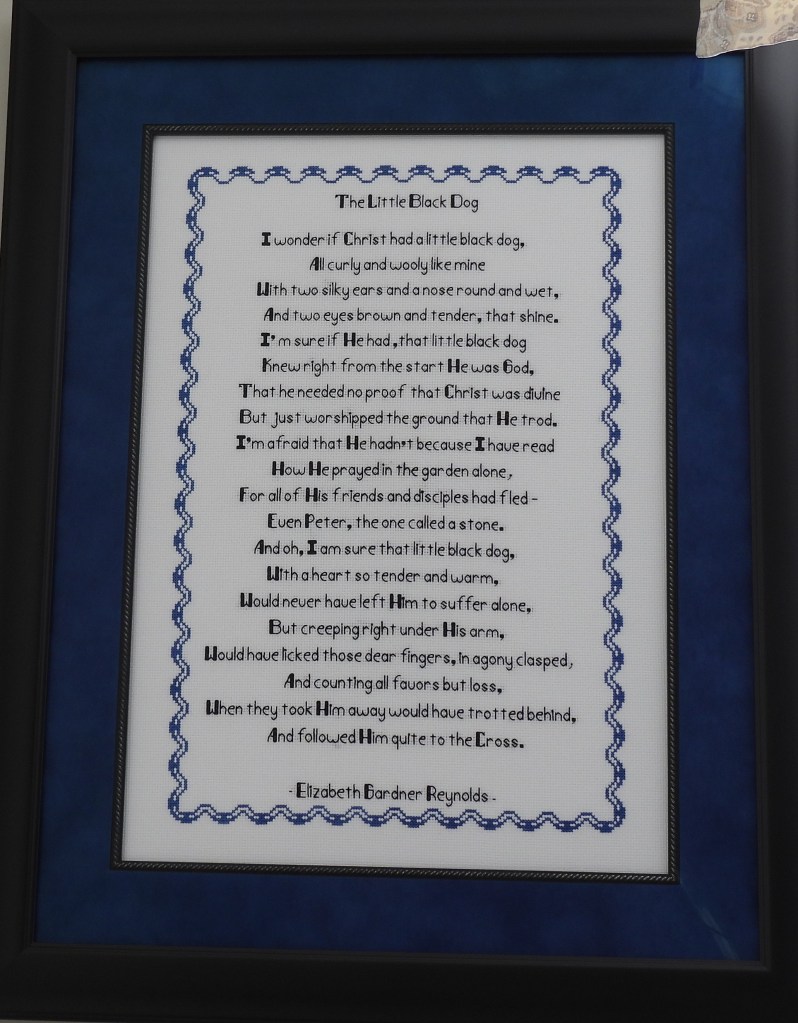 The Little Black Dog
I wonder if Christ had a little black dog,
All curly and wooly like mine
With two silky ears and a nose round and wet,
And two eyes brown and tender, that shine.
I'm sure if He had, that little black dog
Knew right from the start He was God,
That he needed no proof that Christ was divine
But just worshipped the ground that He trod.
I'm afraid that He hadn't because I have read
How He prayed in the garden alone,
For all of His friends and disciples had fled -
Even Peter, the one called a stone.
And oh, I am sure that little black dog,
With a heart so tender and warm,
Would never have left Him to suffer alone,
But creeping right under His arm,
Would have licked those dear fingers, in agony clasped,
And counting all favors but loss,
When they took Him away would have trotted behind,
And followed Him quite to the Cross.
- Elizabeth Gardner Reynolds -